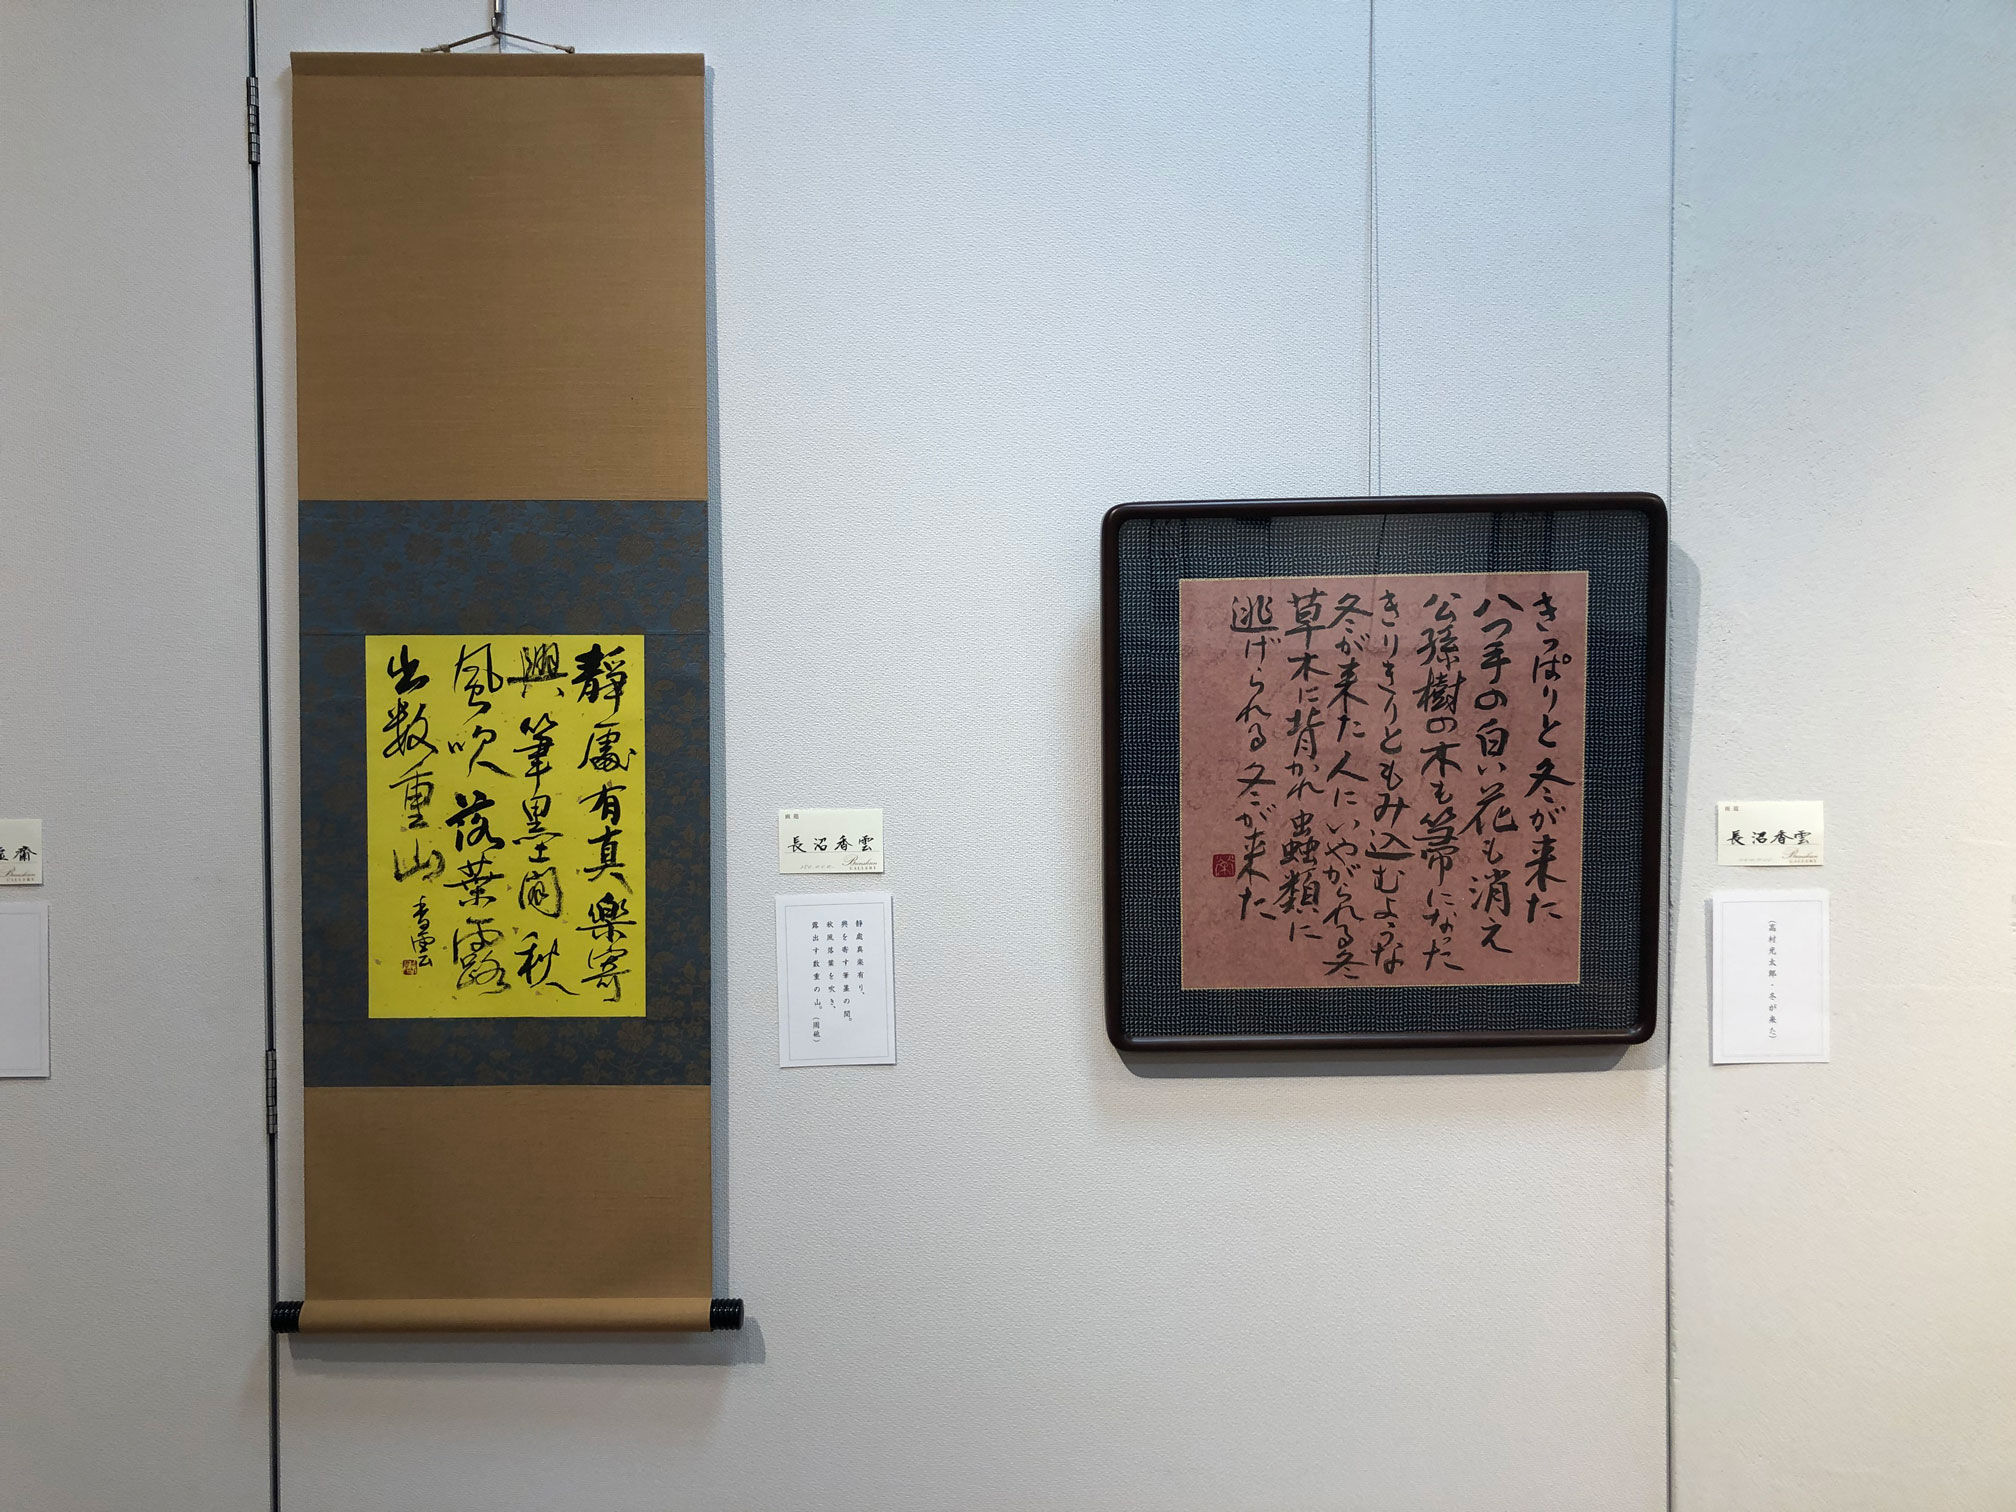 靜處有真樂寄
興筆墨間秋
風吹落葉露
出数重山
香雲
長沼香雲
Bunshun
GALLERY
靜處真楽有り。
興を寄す筆墨の間。
秋風落葉を吹き、
露出す数重の山。
きっぱりと冬が来た
八つ手の白い花も消え
公孫樹の木も箒になった
きりきりともみ込むような
冬が来た人にいやがられる冬
草木に背かれ虫蟲類に
逃げられる冬が来た
長沼香雲
GALLERY
(高村光太郎・冬が来た)
GALLERY